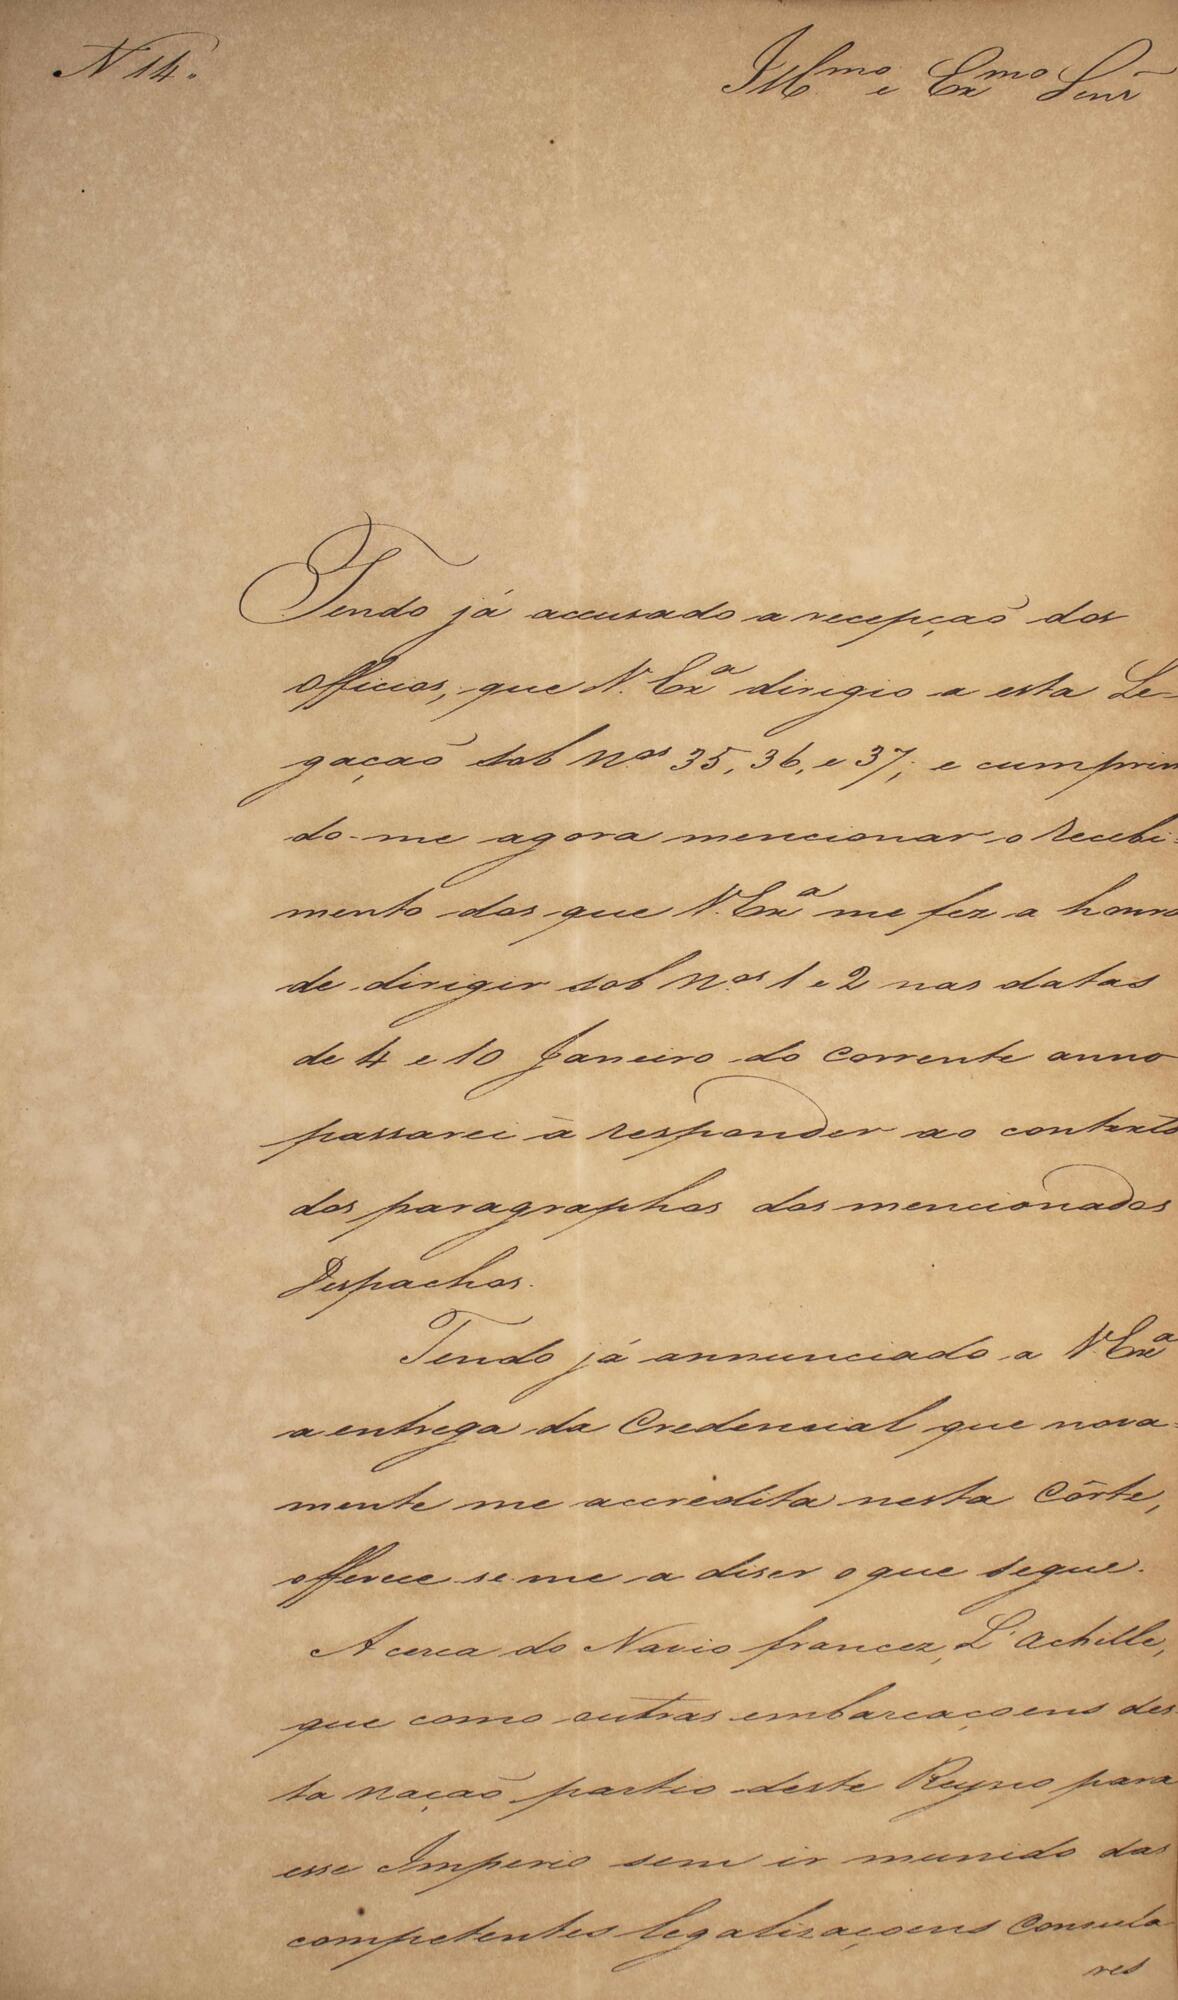 N 14.
Illmo e Exmo Senr
Tendo já accusado a recepção dos
officios, que V. Exa dirigio a esta Le-
gação sob Nos 35, 36, e 37; e cumprin
do-me agora mencionar o recebi-
mento dos que V. Exa me fez a honra
de dirigir sob Nos 1 e 2 nas datas
de 4 e 10 Janeiro do corrente anno
passarei à responder ao contexto
dos paragraphos dos mencionados
Despachos.
Tendo já annunciado a V. Exa
a entrega da Credencial que nova-
mente me accredita nesta Côrte,
offerece se me a diser o que segue.
Acerca do Navio francez, L'Achille,
que como outras embarcaçoens des-
ta nação partio deste Reyno para
esse Imperio sem ir munido das
competentes legalizaçoens Consula
res